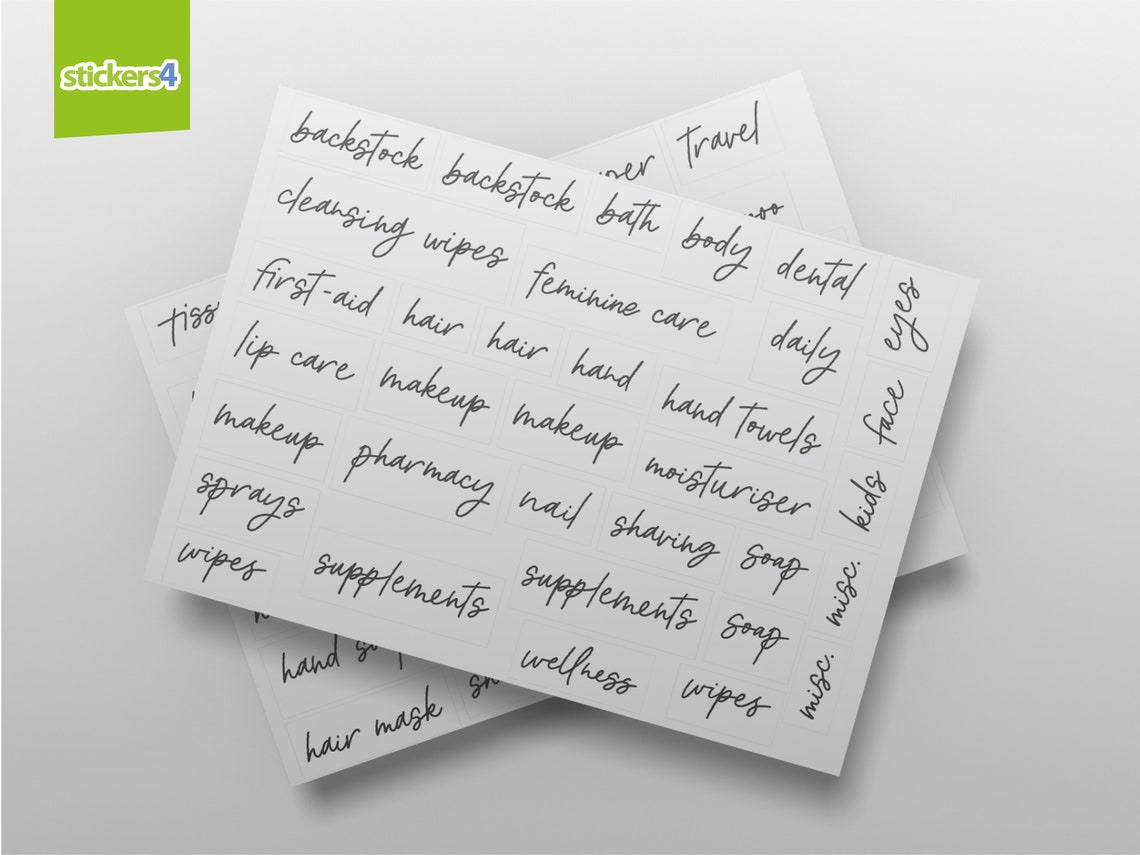 stickers4
travel
backstock backstock bath body dental eyes
cleansing wipes feminine care daily face
first-aid hair hair hand hand towels kids
lip care makeup makeup moisturiser misc.
makeup pharmacy nail shaving soap misc.
sprays supplements supplements soap
wipes wellness wipes
hand
hair mask